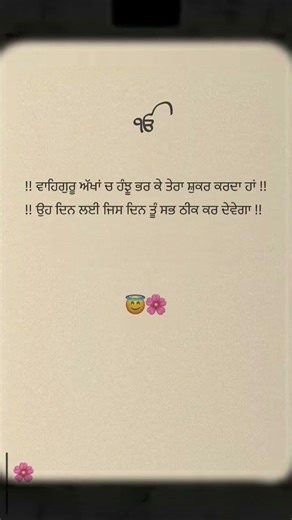 ੴ
!! ਵਾਹਿਗੁਰੂ ਅੱਖਾਂ ਚ ਹੰਝੂ ਭਰ ਕੇ ਤੇਰਾ ਸ਼ੁਕਰ ਕਰਦਾ ਹਾਂ !!
!! ਉਹ ਦਿਨ ਲਈ ਜਿਸ ਦਿਨ ਤੂੰ ਸਭ ਠੀਕ ਕਰ ਦੇਵੇਗਾ !!
😇🌸
🌸